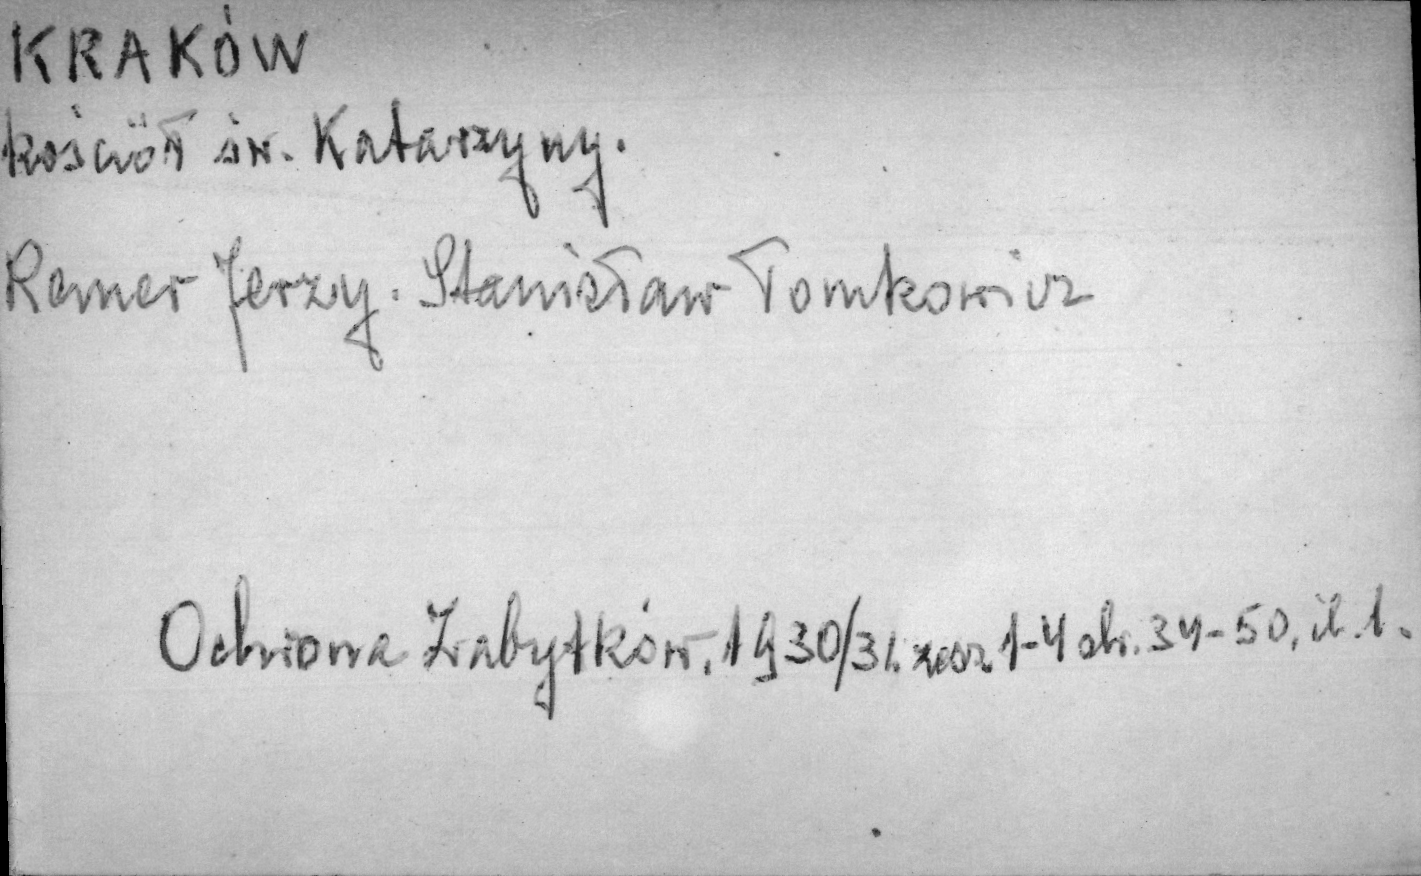 KRAKÓW
kościół św. Katarzyny.
Remer Jerzy. Stanisław Tomkowicz
Ochrona Zabytków, 1930/31. zesz. 1-4 str. 34-50, il. 1.